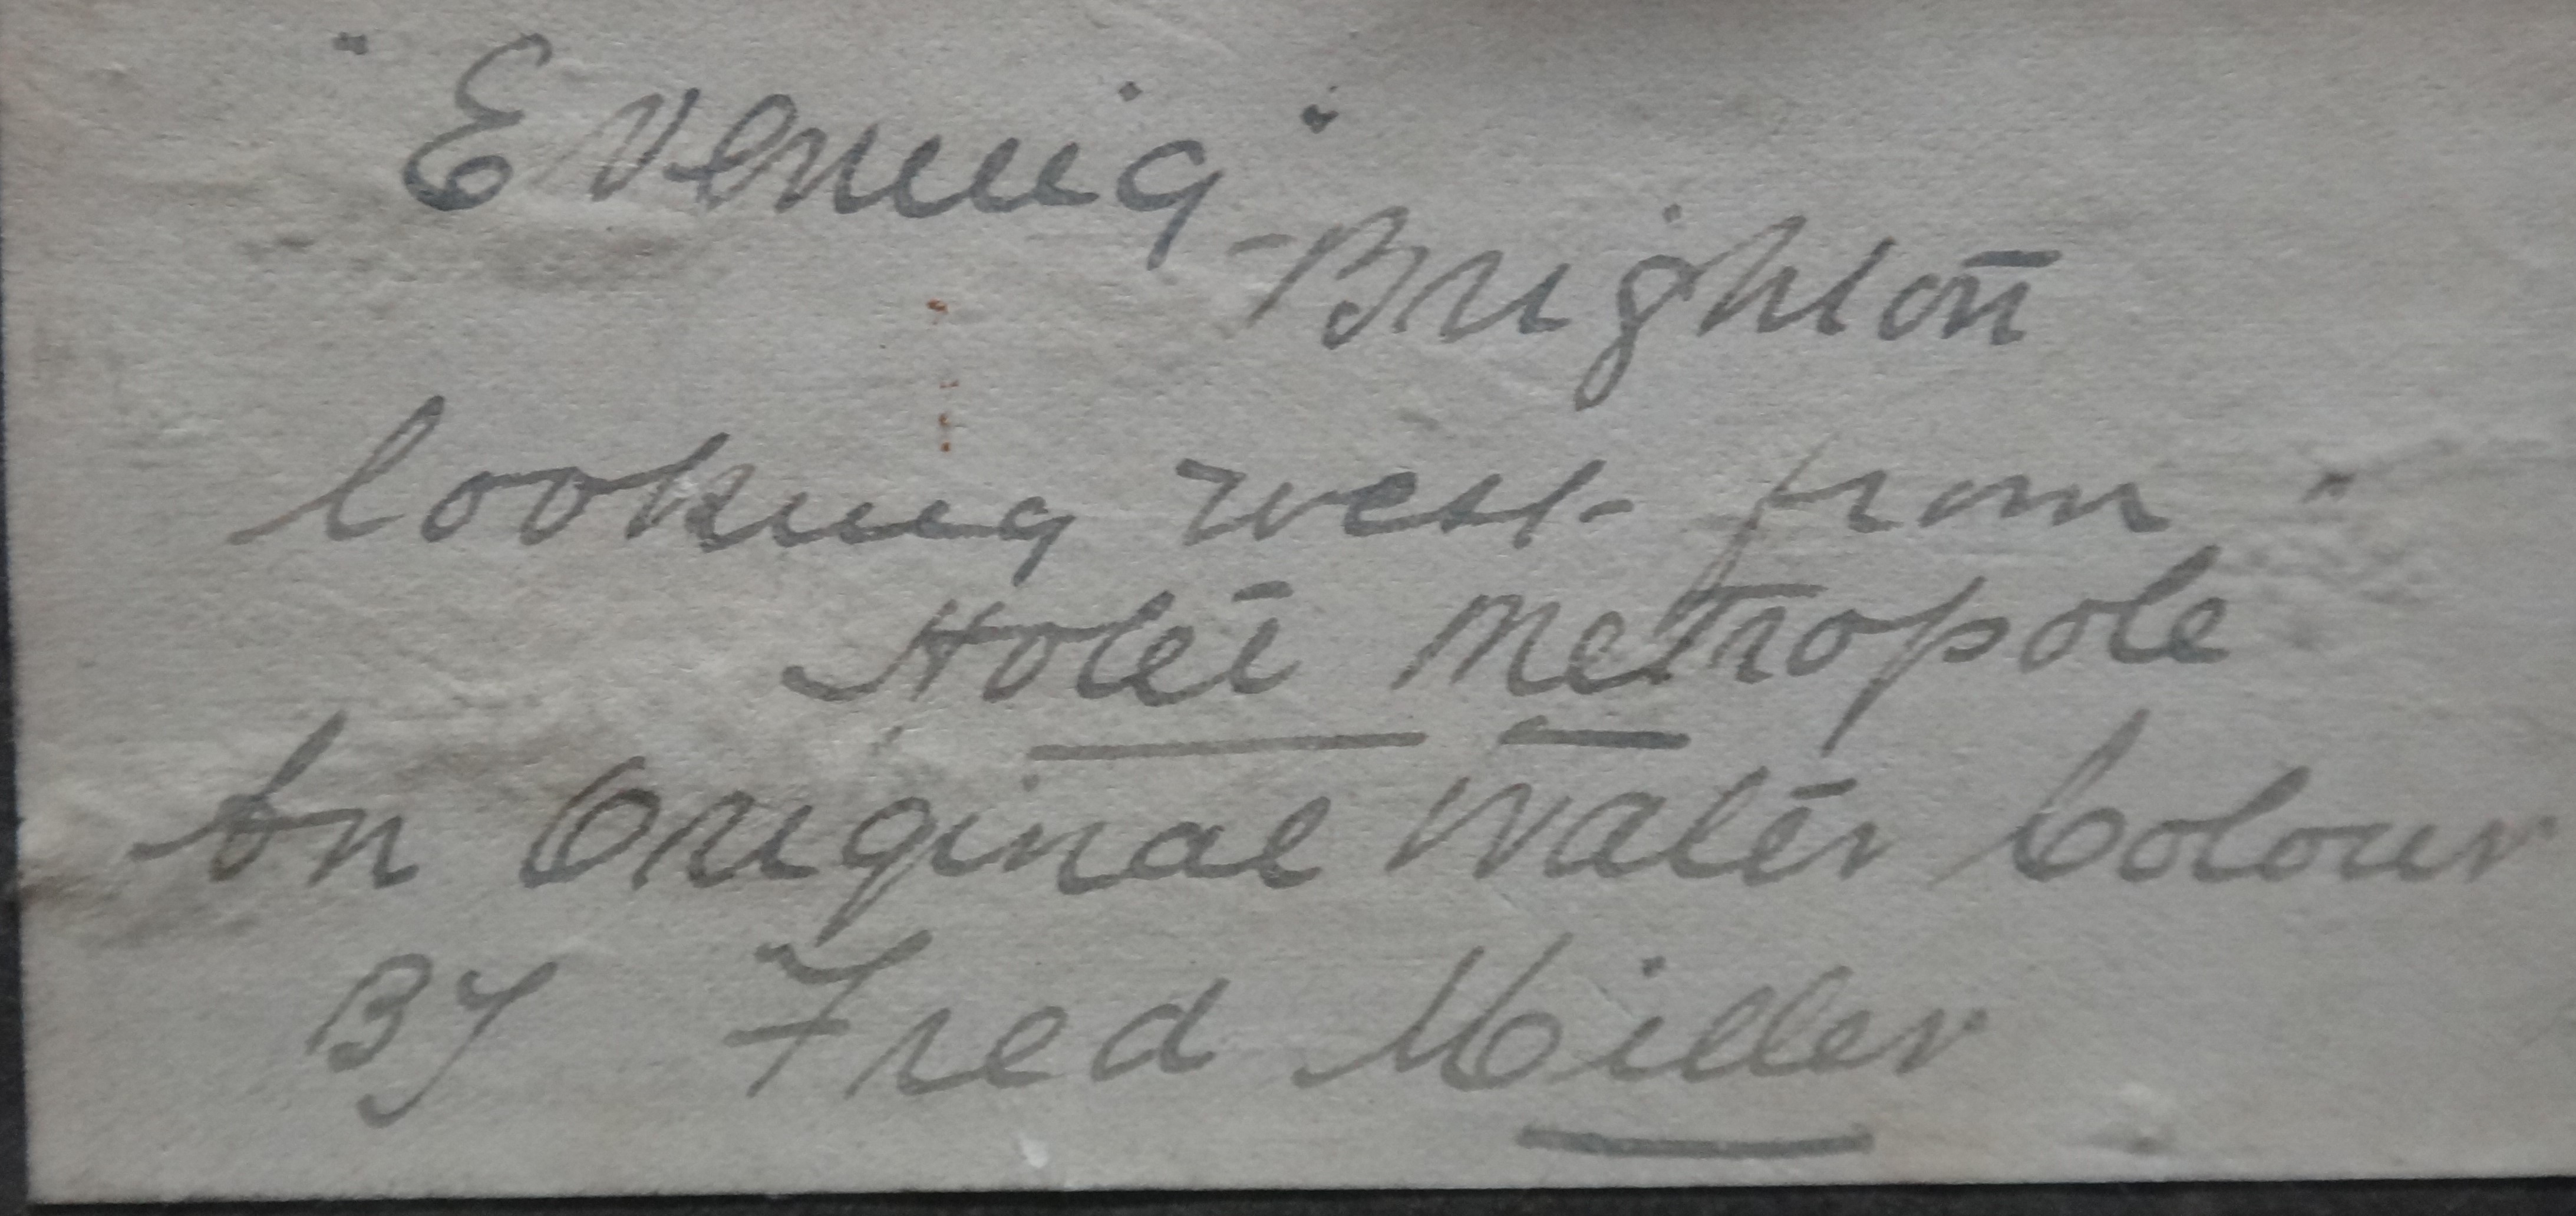 "Evening"
Brighton
looking west from "
Hotel Metropole
An Original Water Colour
By Fred Miller